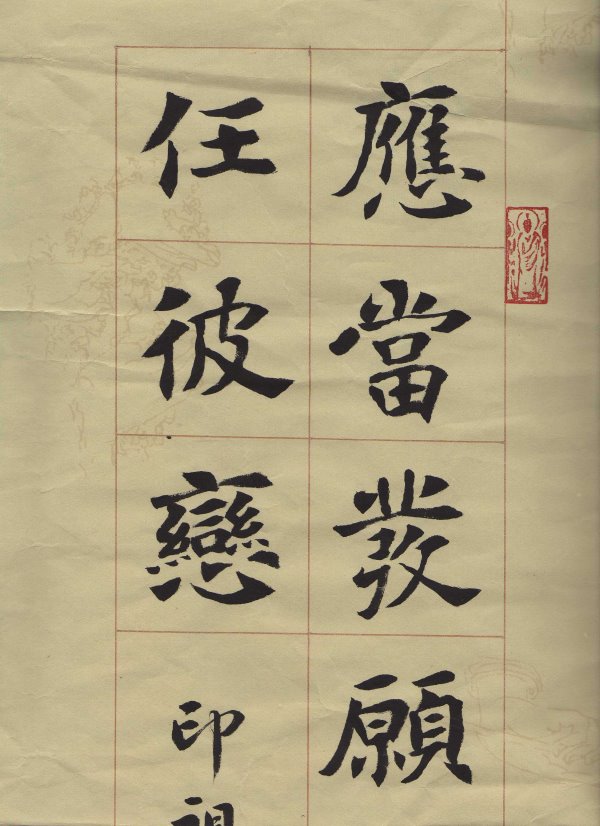 應當發願
任彼戀
印